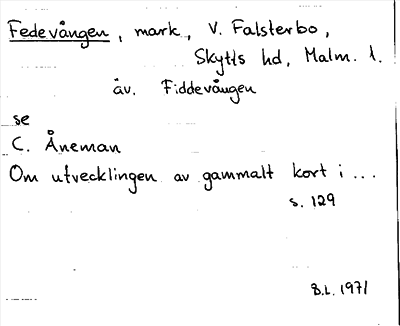 Fedevången, mark, V. Falsterbo,
Skytts hd, Malm. l.
äv. Fiddevången
se
C. Åneman
Om utvecklingen av gammalt kort i ...
s. 129
B.L. 1971